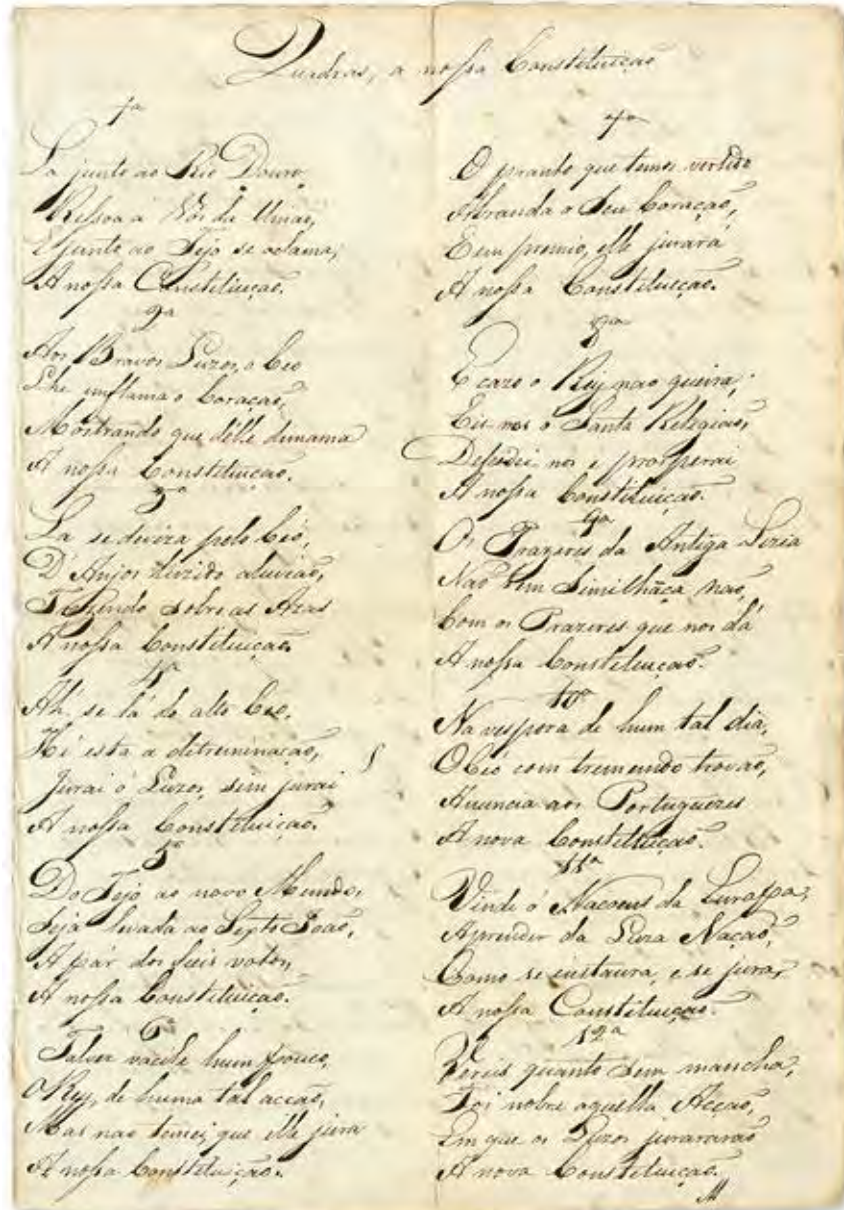 Quadras, a nossa Constituiçaõ
1ª
La junto ao Rio Douro,
Ressoa a Vós da Uniaõ,
E junto ao Tejo se aclama,
A nossa Constituiçaõ.
2ª
Aos Bravos Luzos, o Ceo
Lhe imflama o Coraçaõ,
Mostrando que délle dimama
A nossa Constituiçaõ.
3ª
La se deviza pelo Ceó,
D'Anjos luzido aluviaõ,
Trazendo sobre as Azas
A nossa Constituiçaõ.
4ª
Ah, se lá do alto Ceo,
Hé esta a ditreminaçaõ,
Jurai ó Luzos, sim jurai
A nossa Constituiçaõ.
5ª
Do Tejo ao novo Mundo,
Seja levada ao Sexto Joaõ,
A pár dos fieis votos,
A nossa Constituiçaõ.
6ª
Talvez vacile hum pouco,
O Rey, de huma tal acçaõ,
Mas nao temeis que elle jura
A nossa Constituiçaõ.
7ª
O pranto que temos vertido
Abranda o Seu Coraçaõ,
E em premio, elle jurará
A nossa Constituiçaõ.
8ª
E cazo o Rey nao queira,
Eis nos o Santa Religiaõ,
Defendei nos e prosperai
A nossa Constituiçaõ.
9ª
Os Prazeres da Antiga Luzia
Naõ tem Similhãça naõ,
Com os Prazeres que nos dá
A nossa Constituiçaõ.
10ª
Na vespora de hum tal dia,
O Ceó com tremendo trovaõ,
Anuncia aos Portuguezes
A nova Constituiçaõ.
11ª
Vinde ó Nacoens da Europa,
Aprender da Luza Naçaõ,
Como se instaura, e se jura,
A nossa Constituiçaõ.
12ª
Vereis quanto sem mancha,
Foi nobre aquella Acçaõ,
Em que os Luzos jurararaõ
A nova Constituiçaõ.